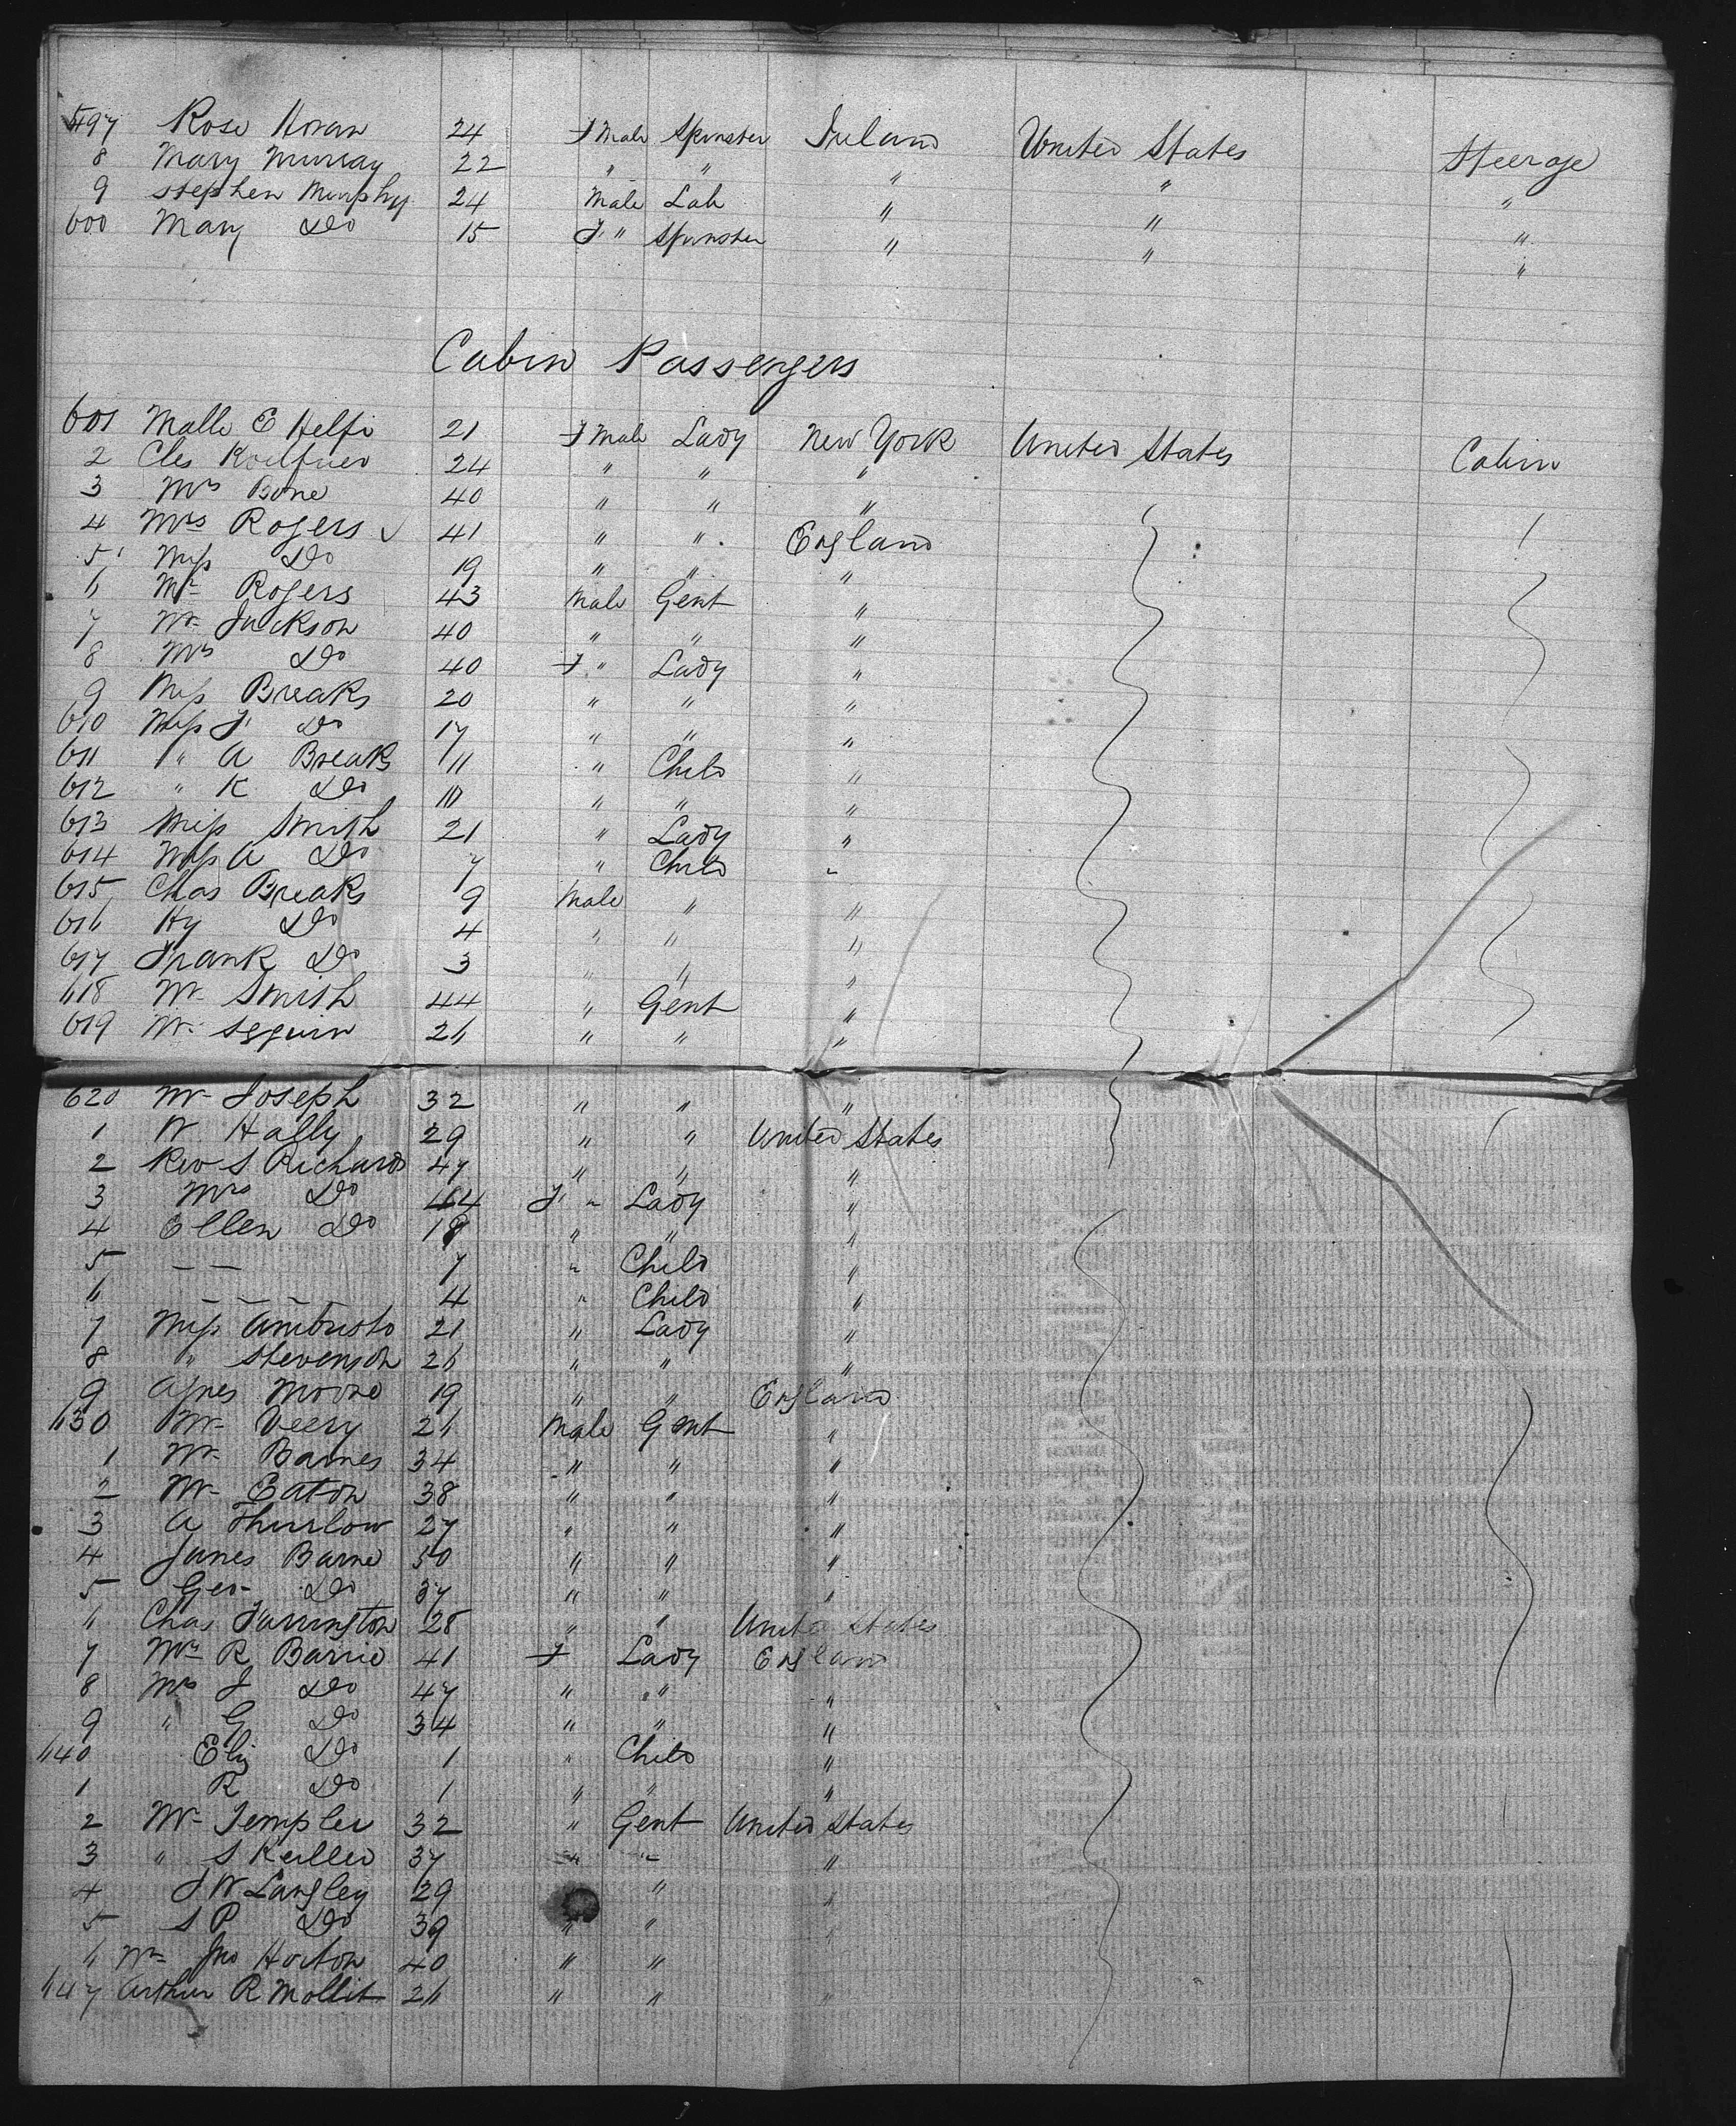 597 Rose Horan 24 F Male Spinster Ireland United States Steerage
8 Mary Murray 22 " " " " "
9 Stephen Murphy 24 Male Lab " " "
600 Mary Do 15 F " Spinster " " "
Cabin Passengers
601 Malle E Helfi 21 F Male Lady New York United States Cabin
2 Cles 24 " " "
3 Mrs Bone 40 " " "
4 Mrs Rogers 41 " " England
5 Miss Do 19 " " "
6 Mr Rogers 43 Male Gent "
7 Mr Jackson 40 " " "
8 Mrs Do 40 F " Lady "
9 Miss Breaks 20 " " "
610 Miss F Do 17 " " "
611 " A Breaks 11 " Child "
612 " K Do 10 " " "
613 Miss Smith 21 " Lady "
614 Miss A Do 7 " Child "
615 Chas Breaks 9 Male " "
616 Hy Do 4 " " "
617 Frank Do 3 " " "
618 Mr Smith 44 " Gent "
619 Mr Seguin 26 " " "
620 Mr Joseph 32 " " "
1 W Hally 29 " " United States
2 Rev S Richards 47 " " "
3 Mrs Do 44 F " Lady "
4 Ellen Do 18 " " "
5 — — 7 " Child "
6 — — — 4 " Child "
7 Miss 21 " Lady "
8 " Stevenson 26 " " "
9 Agnes Moore 19 " " England
630 Mr Veery 26 Male Gent "
1 Mr Barnes 34 " " "
2 Mr Eaton 38 " " "
3 A Thurlow 27 " " "
4 James Barrie 50 " " "
5 Geo Do 37 " " "
6 Chas Farrington 28 " " United States
7 Mrs R Barrie 41 F Lady England
8 Mrs J Do 47 " " "
9 " G Do 34 " " "
640 Eliz Do 1 " Child "
1 R Do 1 " " "
2 Mr Templer 32 " Gent United States
3 " S Keiller 37 " " "
4 J W Langley 29 " "
5 S P Do 39 " " "
6 Mr Jno Horton 40 " "
647 Arthur R Mollit 26 " " "